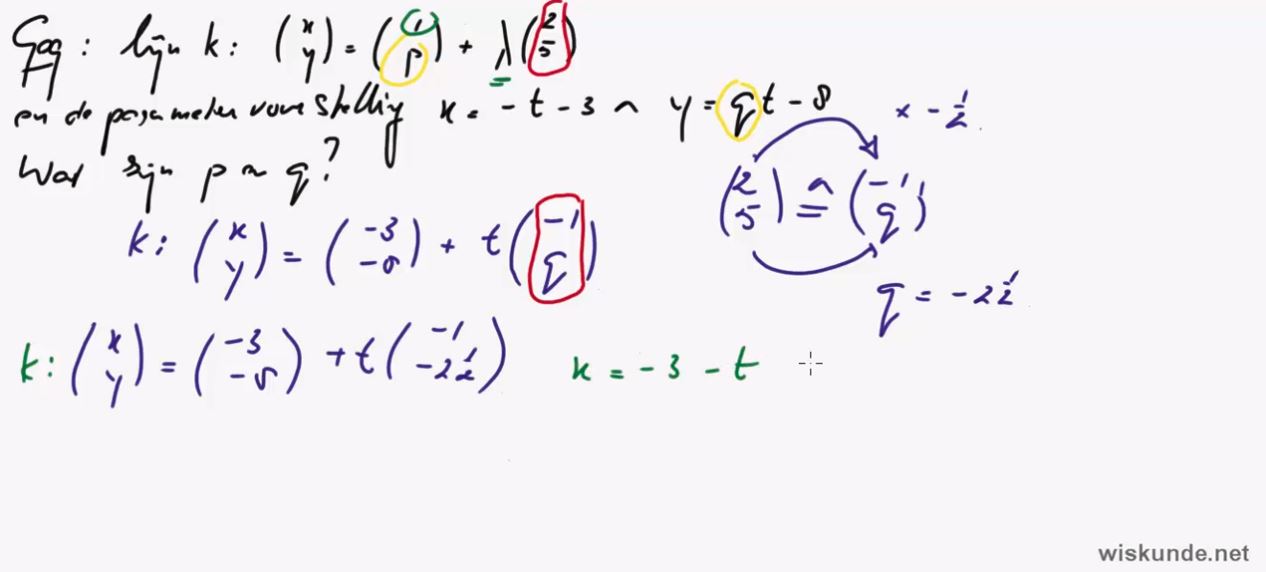 Geg: lijn k: (x y) = (1 p) + λ(2 5)
en de parameter voorstelling x = -t - 3 ∧ y = qt - 8
x - 1/2
Wat zijn p en q?
(2 5) ≙ (-1 q)
k: (x y) = (-3 -8) + t(-1 q)
q = -2 1/2
k: (x y) = (-3 -8) + t(-1 -2 1/2) x = -3 - t
wiskunde.net